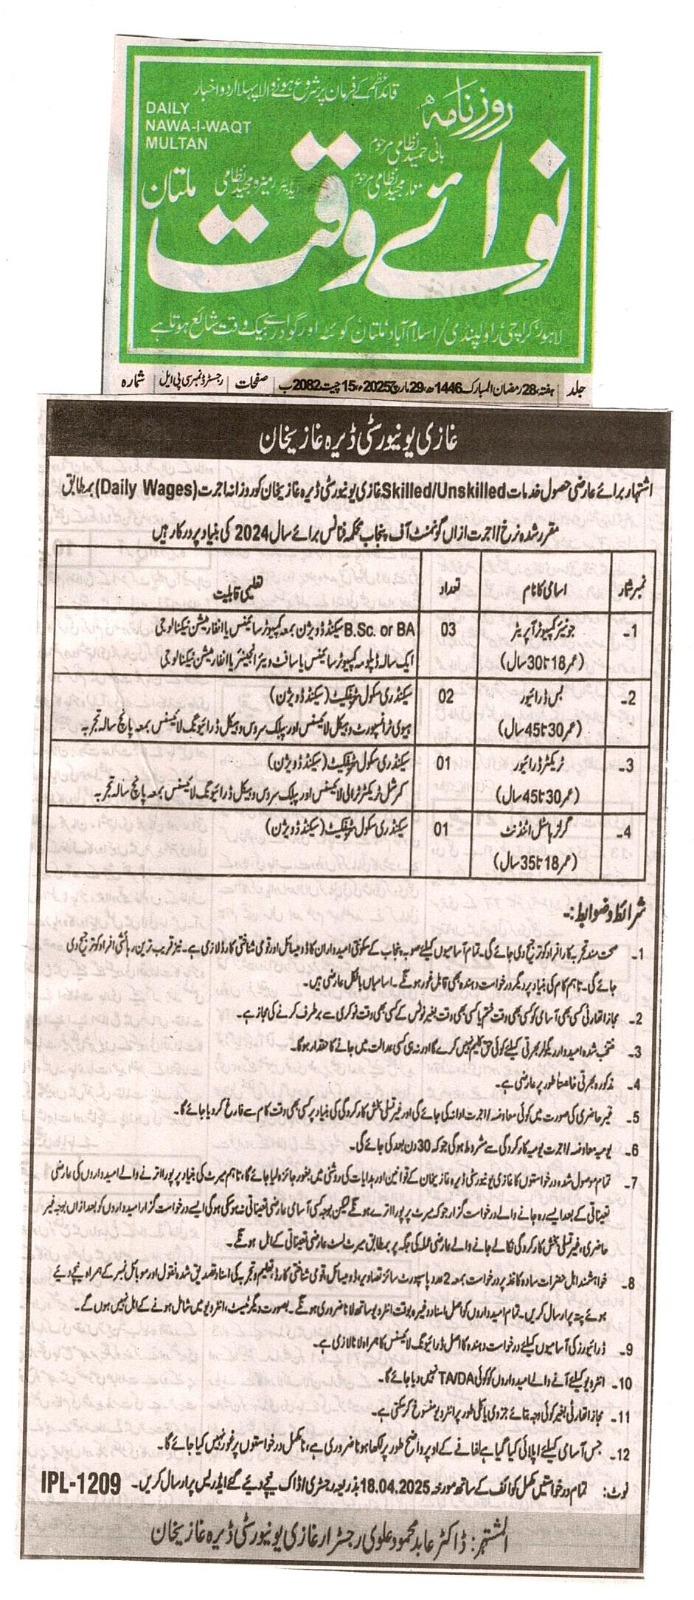 قائداعظم کے فرمان پر شروع ہونے والا پہلا اردو اخبار
روزنامہ
DAILY
NAWA-I-WAQT
MULTAN
بانی حمید نظامی مرحوم
معمار مجید نظامی مرحوم
ایڈیٹر رمیزہ مجید نظامی
نوائے وقت
ملتان
لاہور/کراچی/راولپنڈی/اسلام آباد/ملتان/کوئٹہ اور گوادر سے بیک وقت شائع ہوتا ہے
جلد ہفتہ، 28 رمضان المبارک 1446ھ، 29 مارچ 2025ء، 15 چیت 2082ب صفحات رجسٹرڈ نمبر سی پی ایل شمارہ
غازی یونیورسٹی ڈیرہ غازیخان
اشتہار برائے عارضی حصول خدمات Skilled/Unskilled غازی یونیورسٹی ڈیرہ غازیخان کو روزانہ اجرت (Daily Wages) بمطابق
مقرر شدہ نرخ/اجرت ازاں گورنمنٹ آف پنجاب محکمہ فنانس برائے سال 2024 کی بنیاد پر درکار ہیں
نمبر شمار اسامی کا نام تعداد تعلیمی قابلیت
1۔ جونیئر کمپیوٹر آپریٹر 03 B.Sc. or BA سیکنڈ ڈویژن بمعہ کمپیوٹر سائنس یا انفارمیشن ٹیکنالوجی
(عمر 18 تا 30 سال) ایک سالہ ڈپلومہ کمپیوٹر سائنس یا سافٹ ویئر انجینئر یا انفارمیشن ٹیکنالوجی
2۔ بس ڈرائیور 02 سیکنڈری سکول سرٹیفکیٹ (سیکنڈ ڈویژن)
(عمر 30 تا 45 سال) ہیوی ٹرانسپورٹ وہیکل لائیسنس اور پبلک سروس وہیکل ڈرائیونگ لائیسنس بمعہ پانچ سالہ تجربہ
3۔ ٹریکٹر ڈرائیور 01 سیکنڈری سکول سرٹیفکیٹ (سیکنڈ ڈویژن)
(عمر 30 تا 45 سال) کمرشل ٹریکٹر ٹرالی لائیسنس اور پبلک سروس وہیکل ڈرائیونگ لائیسنس بمعہ پانچ سالہ تجربہ
4۔ گرلز ہاسٹل اٹنڈنٹ 01 سیکنڈری سکول سرٹیفکیٹ (سیکنڈ ڈویژن)
(عمر 18 تا 35 سال)
شرائط و ضوابط:۔
1۔ صحت مند تجربہ کار افراد کو ترجیح دی جائے گی۔ تمام آسامیوں کیلئے صوبہ پنجاب کے سکونتی امیدواران کا ڈومیسائل اور قومی شناختی کارڈ لازمی ہے۔ نیز قریب ترین رہائشی افراد کو ترجیح دی
جائے گی۔ تاہم کام کی بنیاد پر دیگر درخواست دہندہ بھی قابل غور ہونگے۔ اسامیاں بالکل عارضی ہیں۔
2۔ مجاز اتھارٹی کسی بھی آسامی کو کسی بھی وقت ختم یا کسی بھی وقت بغیر نوٹس کے کسی بھی وقت نوکری سے برطرف کرنے کی مجاز ہے۔
3۔ منتخب شدہ امیدوار ریگولر بھرتی کیلئے کوئی حق کلیم نہیں کرے گا اور نہ ہی کسی عدالت میں جانے کا حقدار ہوگا۔
4۔ مذکورہ بھرتی خالصتا طور پر عارضی ہے۔
5۔ غیر حاضری کی صورت میں کوئی معاوضہ/اجرت ادا نہ کی جائے گی اور غیر تسلی بخش کارکردگی کی بنیاد پر کسی بھی وقت کام سے فارغ کر دیا جائے گا۔
6۔ یومیہ معاوضہ/اجرت یومیہ کارکردگی سے مشروط ہوگی جو کہ 30 دن بعد کی جائے گی۔
7۔ تمام موصول شدہ درخواستوں کا غازی یونیورسٹی ڈیرہ غازیخان کے قوانین اور ہدایات کی روشنی میں بغور جائزہ لیا جائے گا، تاہم میرٹ کی بنیاد پر پورا اترنے والے امیدواروں کی عارضی
تعیناتی کے بعد ایسے رہ جانے والے درخواست گزار جو کہ میرٹ پر پورا اترے ہونگے لیکن بوجہ کسی آسامی عارضی تعیناتی نہ ہو سکی ہوگی ایسے درخواست گزار امیدواروں کو بعد ازاں بوجہ غیر
حاضری، غیر تسلی بخش کارکردگی نکالے جانے والے عارضی عملہ کی جگہ پر بمطابق میرٹ لسٹ عارضی تعیناتی کے اہل ہونگے۔
8۔ خواہشمند اہل حضرات سادہ کاغذ پر درخواست بمعہ 2 عدد پاسپورٹ سائز تصاویر، ڈومیسائل، قومی شناختی کارڈ، تعلیم و تجربہ کی اسناد تصدیق شدہ نقول اور موبائل نمبر کے ہمراہ نیچے دیئے
ہوئے پتہ پر ارسال کریں۔ تمام امیدواروں کو اصل اسناد وغیرہ بوقت انٹرویو ساتھ لانا ضروری ہونگے۔ بصورت دیگر ٹیسٹ، انٹرویو میں شامل ہونے کے اہل نہیں ہوں گے۔
9۔ ڈرائیورز کی آسامیوں کیلئے درخواست دہندہ کا اصل ڈرائیونگ لائیسنس کا ہمراہ لانا لازمی ہے۔
10۔ انٹرویو کیلئے آنے والے امیدواروں کو کوئی TA/DA نہیں دیا جائے گا۔
11۔ مجاز اتھارٹی بغیر کوئی وجہ بتائے جزوی یا کلی طور پر انٹرویو منسوخ کر سکتی ہے۔
12۔ جس آسامی کیلئے اپلائی کیا گیا ہے لفافے کے اوپر واضح طور پر لکھا ہونا ضروری ہے، نا مکمل درخواستوں پر غور نہیں کیا جائے گا۔
نوٹ: تمام درخواستیں مکمل کوائف کے ساتھ مورخہ 18.04.2025 بذریعہ رجسٹری/ڈاک نیچے دیئے گئے ایڈریس پر ارسال کریں۔ IPL-1209
المشتہر: ڈاکٹر عابد محمود علوی رجسٹرار غازی یونیورسٹی ڈیرہ غازیخان